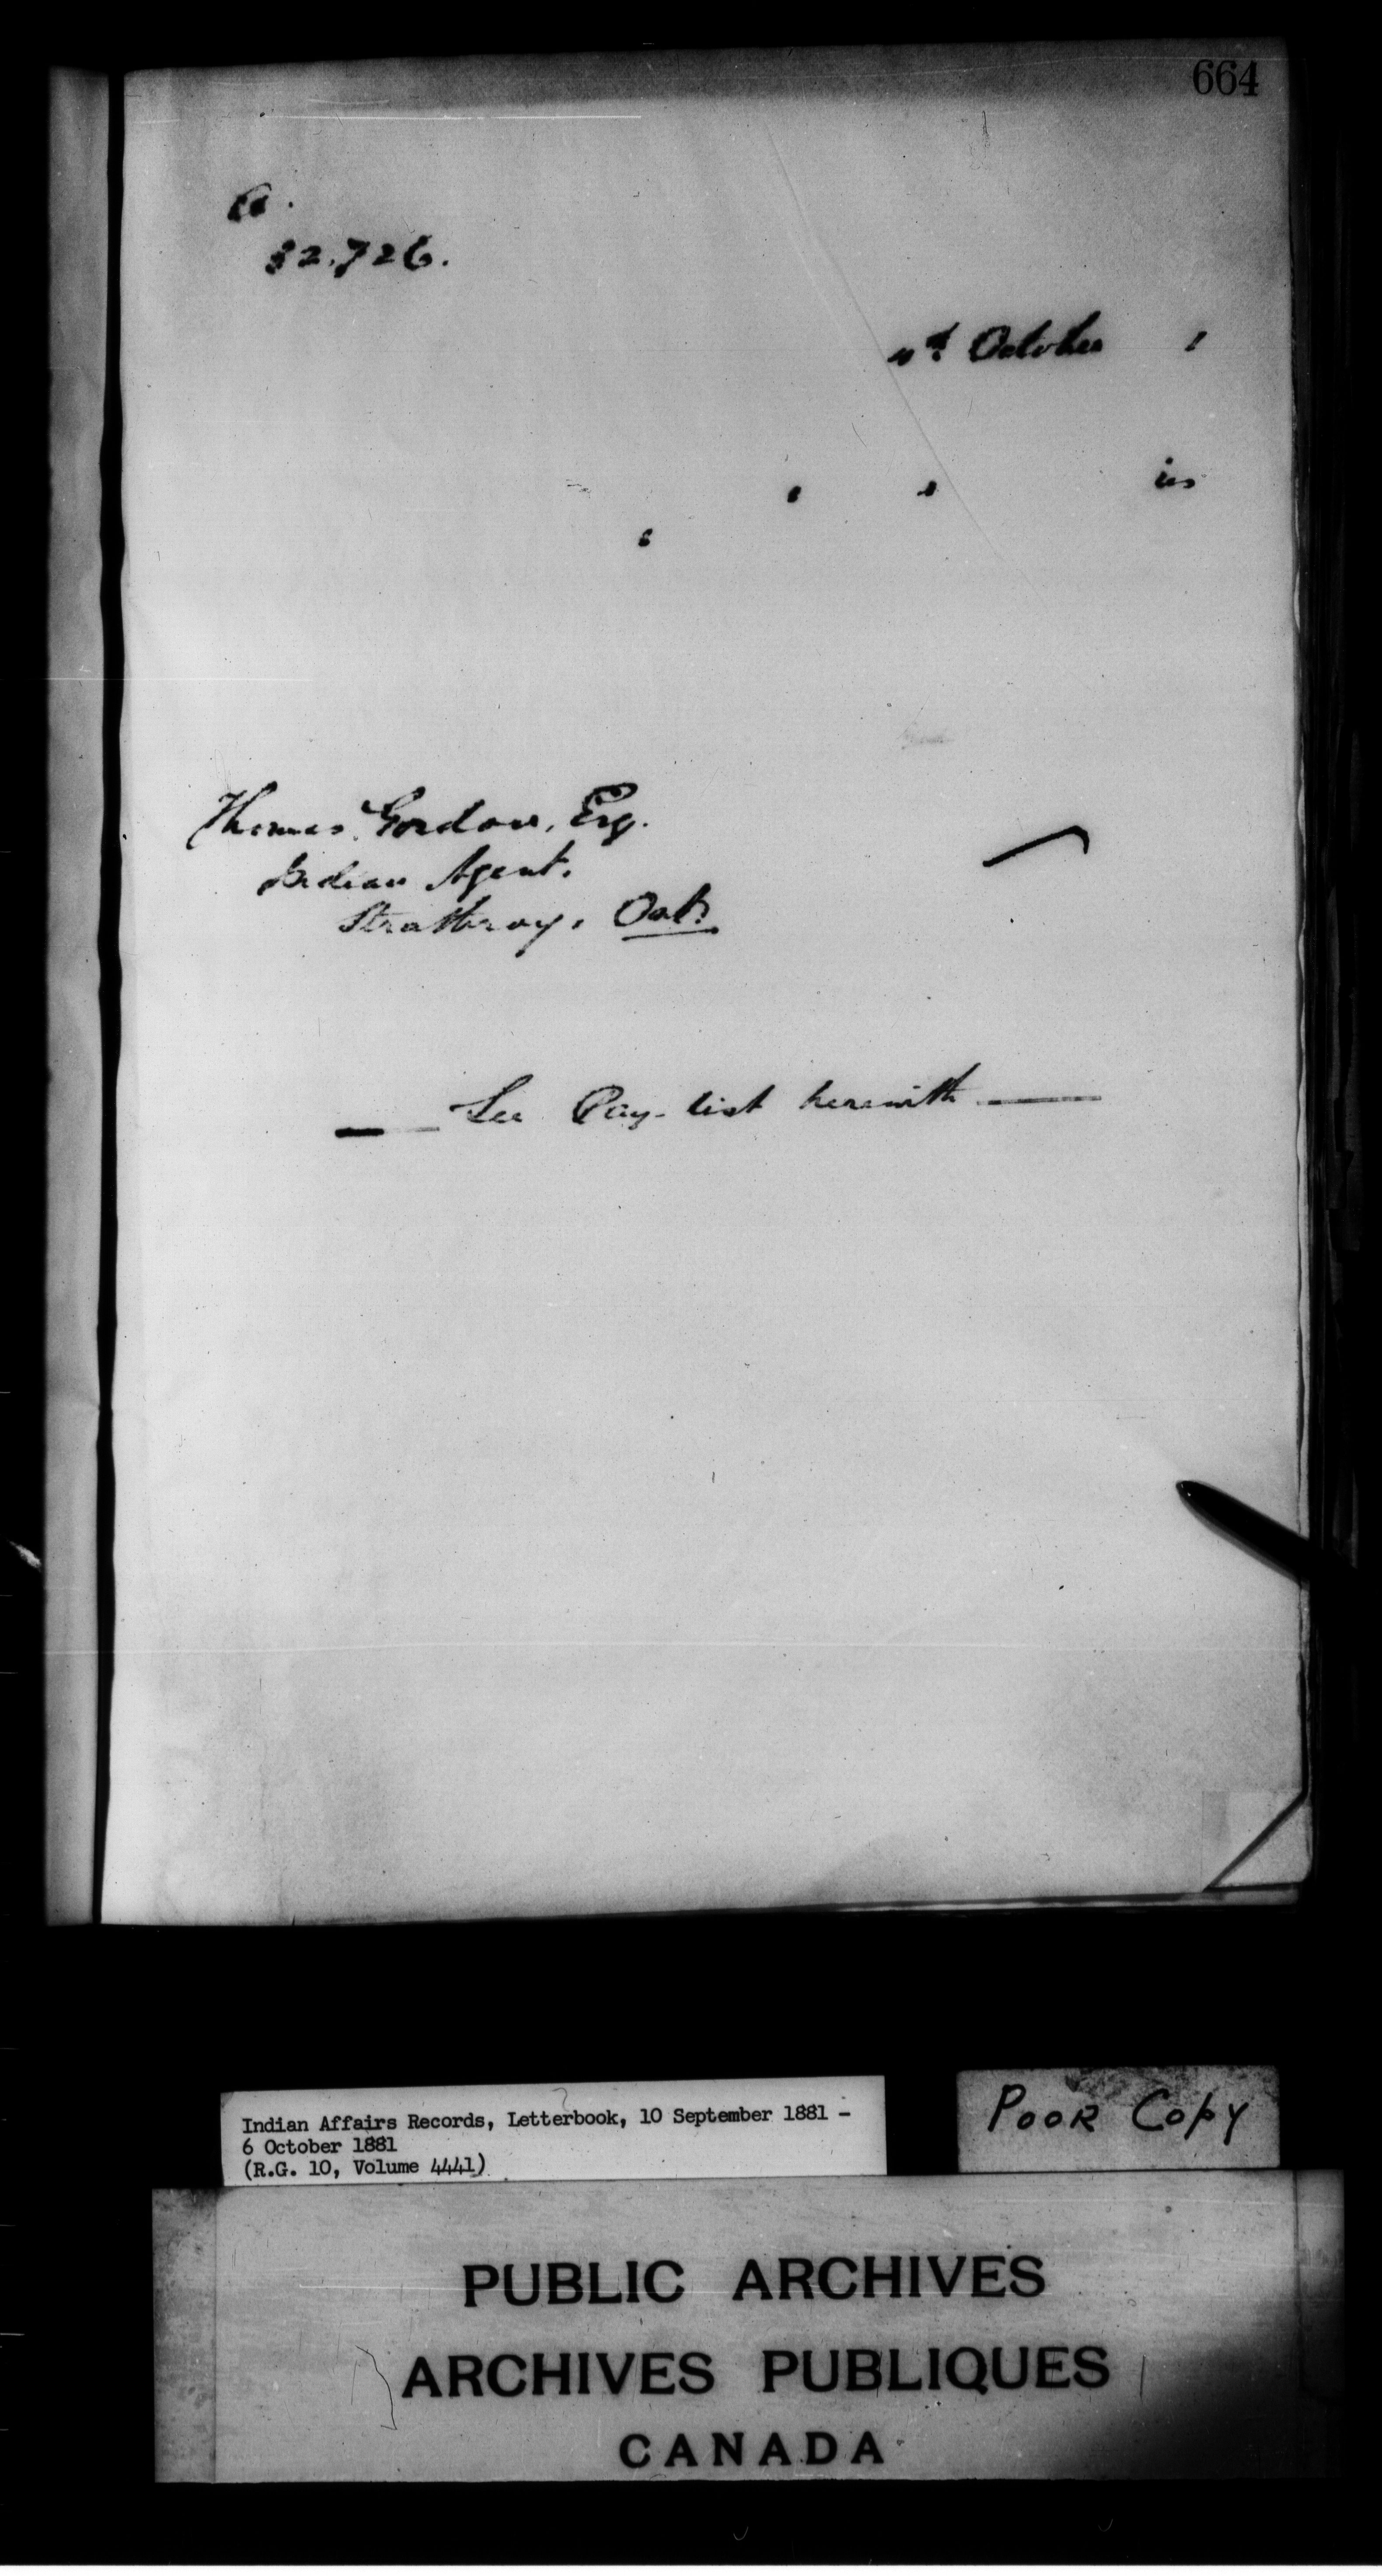 664
a.
32.726.
October 1
is
Thomas Gordon, Esq.
Indian Agent.
Strathroy, Ont.
See Pay-list herewith
Indian Affairs Records, Letterbook, 10 September 1881 -
6 October 1881
(R.G. 10, Volume 4441)
POOR COPY
PUBLIC ARCHIVES
ARCHIVES PUBLIQUES
CANADA